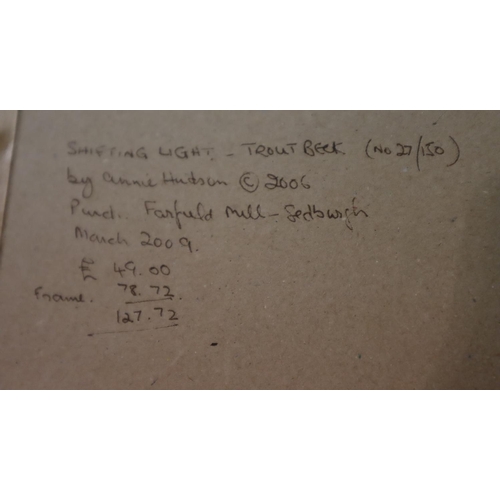 SHIFTING LIGHT - TROUT BECK (NO 27/150)
by Annie Hudson © 2006
Purd. Farfield Mill - Sedburgh
March 2009.
£ 49.00
Frame. 78.72.
127.72